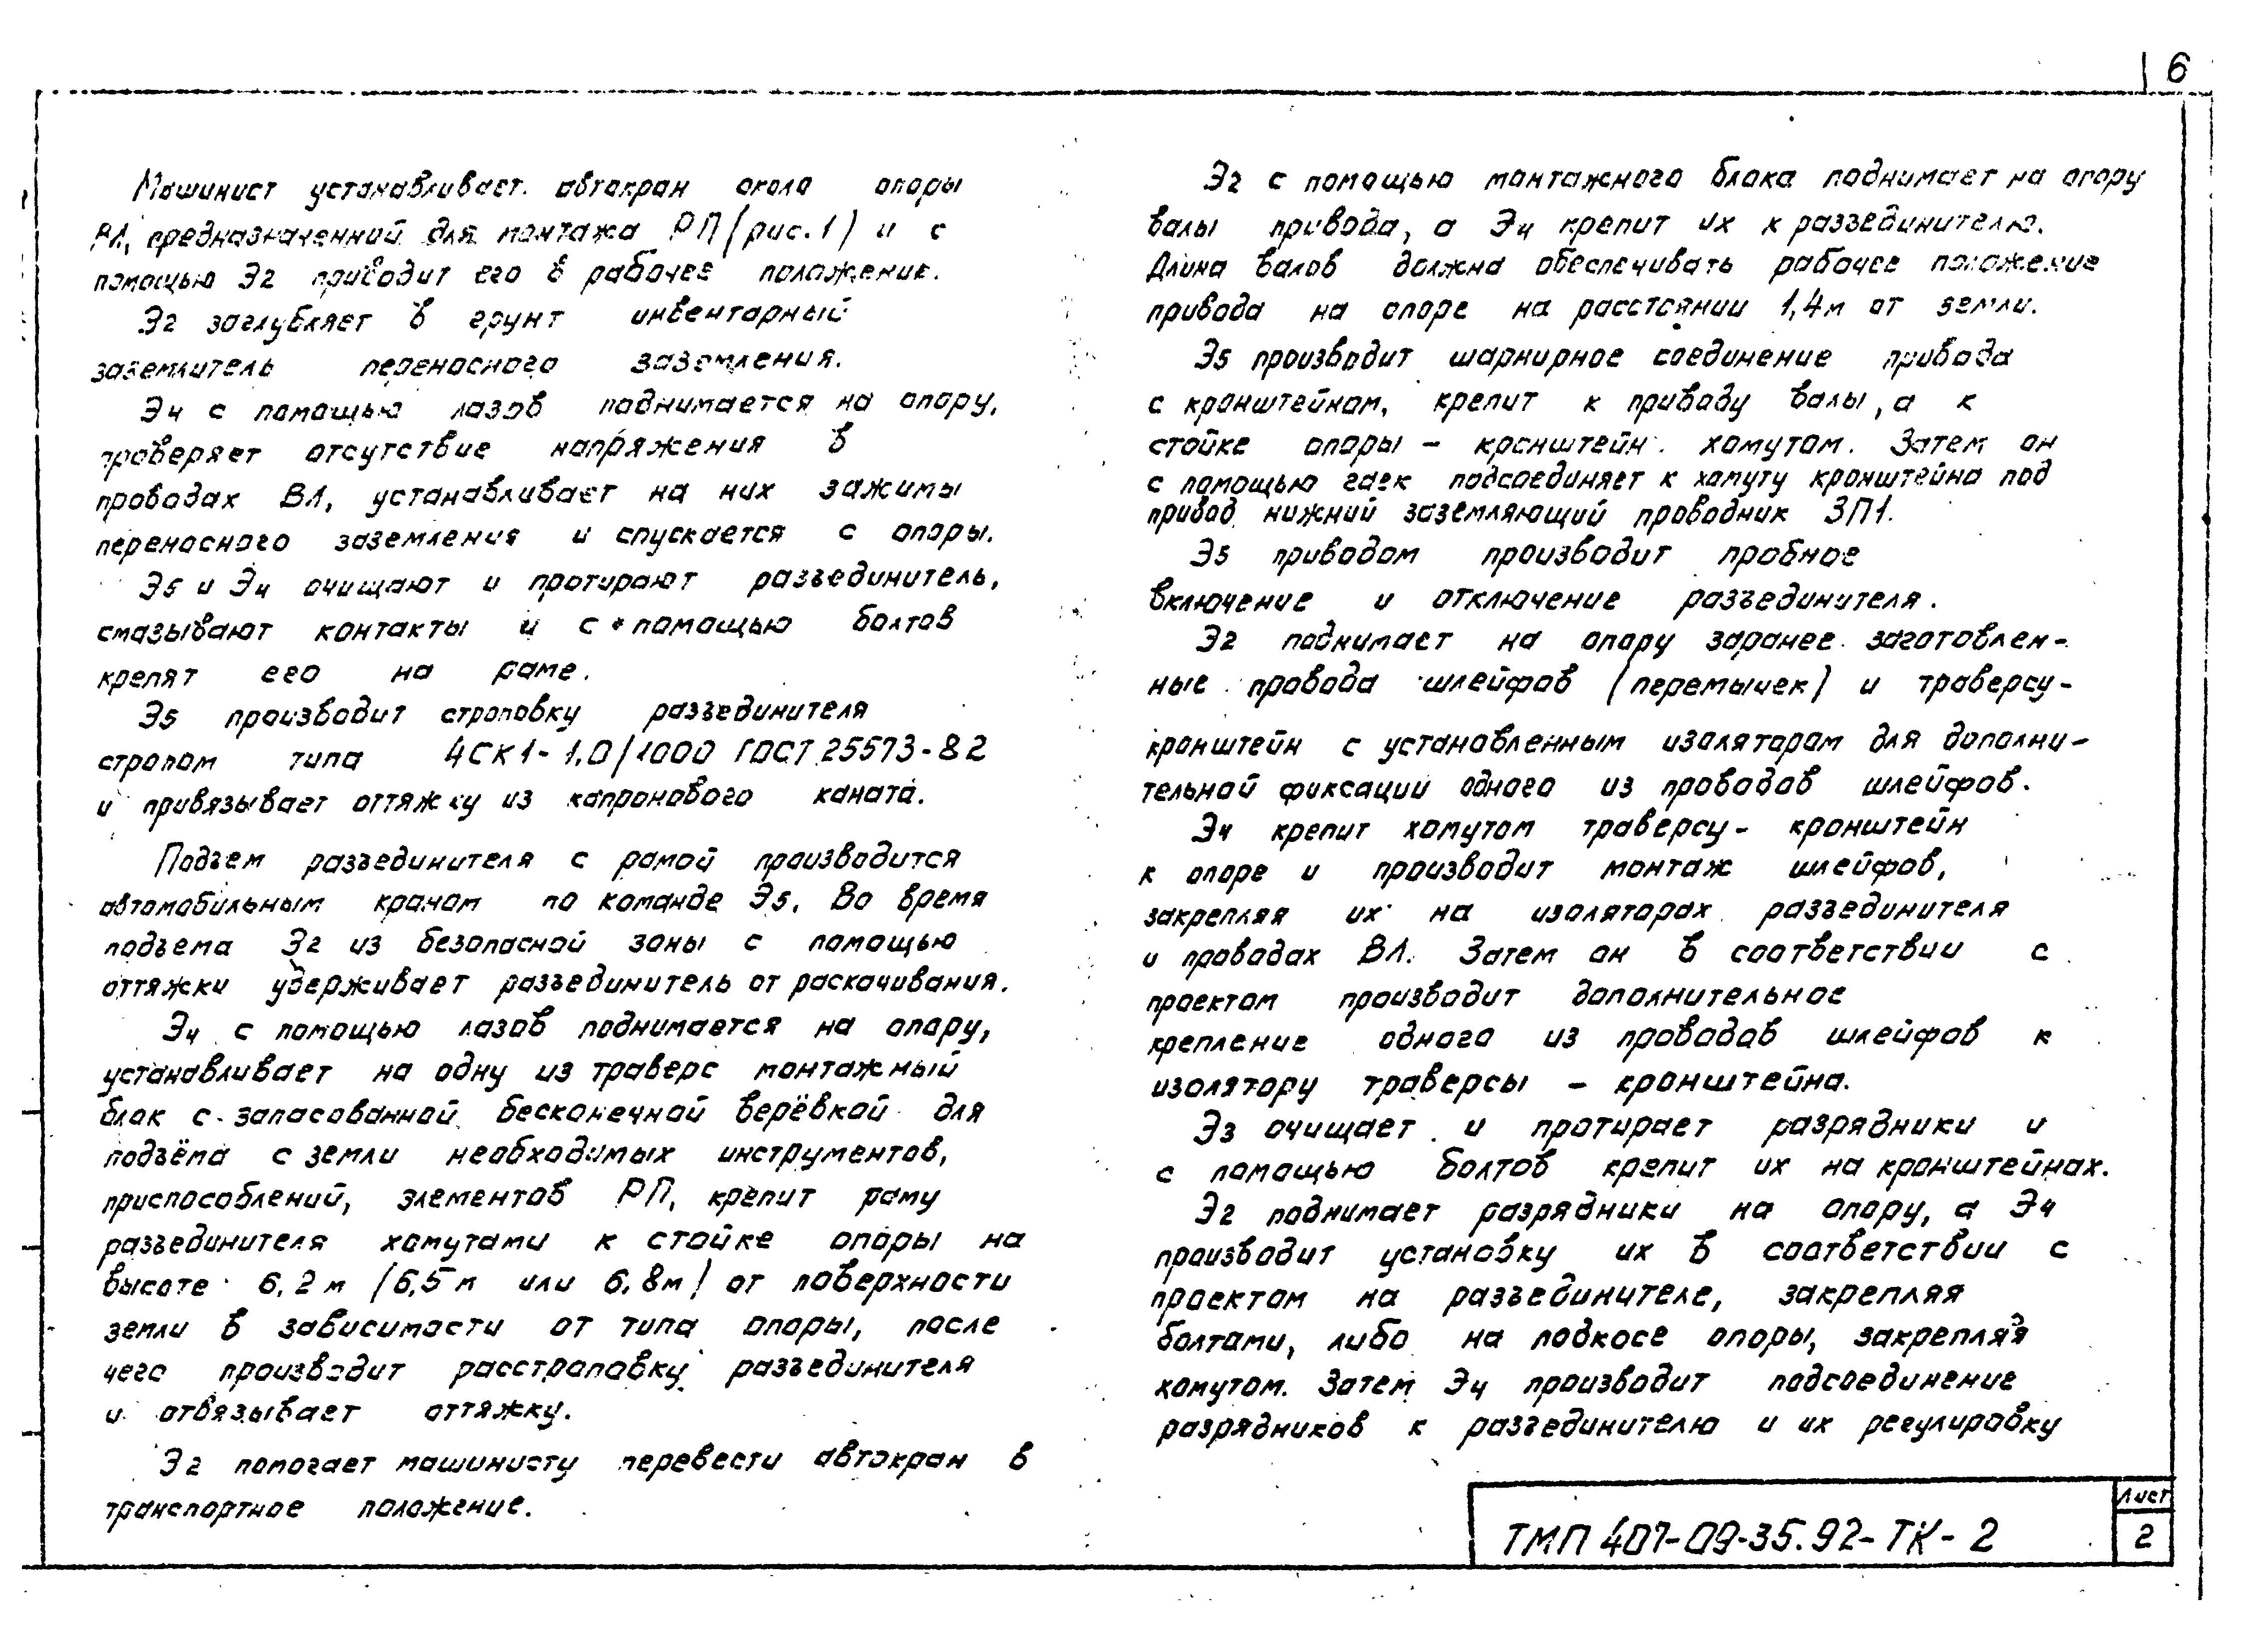 6
Машинист устанавливает автокран около опоры
ВЛ, предназначенной для монтажа РП (рис. 1) и с
помощью Э2 приводит его в рабочее положение.
Э2 заглубляет в грунт инвентарный
заземлитель переносного заземления.
Э4 с помощью лазов поднимается на опору,
проверяет отсутствие напряжения в
проводах ВЛ, устанавливает на них зажимы
переносного заземления и спускается с опоры.
Э5 и Э4 очищают и протирают разъединитель,
смазывают контакты и с помощью болтов
крепят его на раме.
Э5 производит строповку разъединителя
стропом типа 4СК1-1,0/1000 ГОСТ 25573-82
и привязывает оттяжку из капронового каната.
Подъем разъединителя с рамой производится
автомобильным краном по команде Э5. Во время
подъема Э2 из безопасной зоны с помощью
оттяжки удерживает разъединитель от раскачивания.
Э4 с помощью лазов поднимается на опору,
устанавливает на одну из траверс монтажный
блок с запасованной бесконечной верёвкой для
подъёма с земли необходимых инструментов,
приспособлений, элементов РП, крепит раму
разъединителя хомутами к стойке опоры на
высоте 6,2 м (6,5 м или 6,8 м) от поверхности
земли в зависимости от типа опоры, после
чего производит расстроповку разъединителя
и отвязывает оттяжку.
Э2 помогает машинисту перевести автокран в
транспортное положение.
Э2 с помощью монтажного блока поднимает на опору
валы привода, а Э4 крепит их к разъединителю.
Длина валов должна обеспечивать рабочее положение
привода на опоре на расстоянии 1,4 м от земли.
Э5 производит шарнирное соединение привода
с кронштейном, крепит к приводу валы, а к
стойке опоры - кронштейн хомутом. Затем он
с помощью гаек подсоединяет к хомуту кронштейна под
привод нижний заземляющий проводник ЗП1.
Э5 приводом производит пробное
включение и отключение разъединителя.
Э2 поднимает на опору заранее заготовлен-
ные провода шлейфов (перемычек) и траверсу-
кронштейн с установленным изолятором для дополни-
тельной фиксации одного из проводов шлейфов.
Э4 крепит хомутом траверсу- кронштейн
к опоре и производит монтаж шлейфов,
закрепляя их на изоляторах разъединителя
и проводах ВЛ. Затем он в соответствии с
проектом производит дополнительное
крепление одного из проводов шлейфов к
изолятору траверсы - кронштейна.
Э3 очищает и протирает разрядники и
с помощью болтов крепит их на кронштейнах.
Э2 поднимает разрядники на опору, а Э4
производит установку их в соответствии с
проектом на разъединителе, закрепляя
болтами, либо на подкосе опоры, закрепляя
хомутом. Затем Э4 производит подсоединение
разрядников к разъединителю и их регулировку
ТМП 407-09-35.92-ТК-2
Лист
2